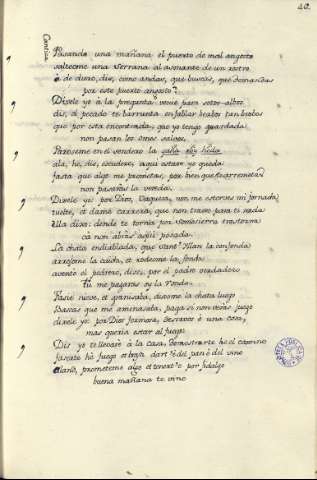 40.
Cantica
Pasando una mañana el puerto de mal angosto
salteome una serrana al asomante de un rostro
o de diz, dis, cómo andas, que buscas, que demandas
por este puerto angosto?
Dixele yo a la pregunta vome para sotos albos
dis, el pecado te barrunta en fablar berbos tan brabos
que por esta encontrada, que yo tengo guardada
non pasan los omes salvos.
Paróseme en el sendero la gaha roin heda
ala, he, dis, escudero, aqui estaré yo queda
fasta que algo me prometas, por bien que te arremetas
non pasarás la vereda.
Dixele yo por Dios, Vaquera, non me estorves mi jornada
tuelte, et dame carrera, que non traxe para ti nada
Ella dixo: dende te torna por somosierra trastorna
ca non abrás aqui posada.
La chata endiablada, que sant. Illan la confonda
arrojome la cayada, et rodeome la fonda
aventó el pedrero, dixo, por el padre verdadero
tú me pagarás oy la ronda.
Fasie nieve, et granisaba, dixome la chata luego
Bascas que me amenasaba, paga si non verás juego
dixele yo: por Dios fermosa, desirvos é una cosa,
mas querria estar al fuego.
Dis yo te llevaré a la casa, demostrarte he el camino
faserte he fuego et brasa darte he del pan é del vino
Alahé, prometeme algo et tenert he por fidalgo
buena mañana te vino